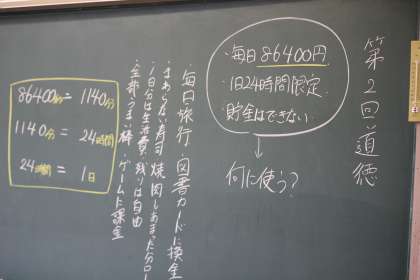 第2回 道徳
・毎日86400円
・1日24時間限定
・貯金はできない
↓
何に使う?
毎日旅行 図書カードに換金
・まわらない寿司 焼肉
・1日分は生活費、残りは自由
・全部うまい棒・ゲームに課金
86400秒 = 1140分
1140分 = 24時間
24時間 = 1日